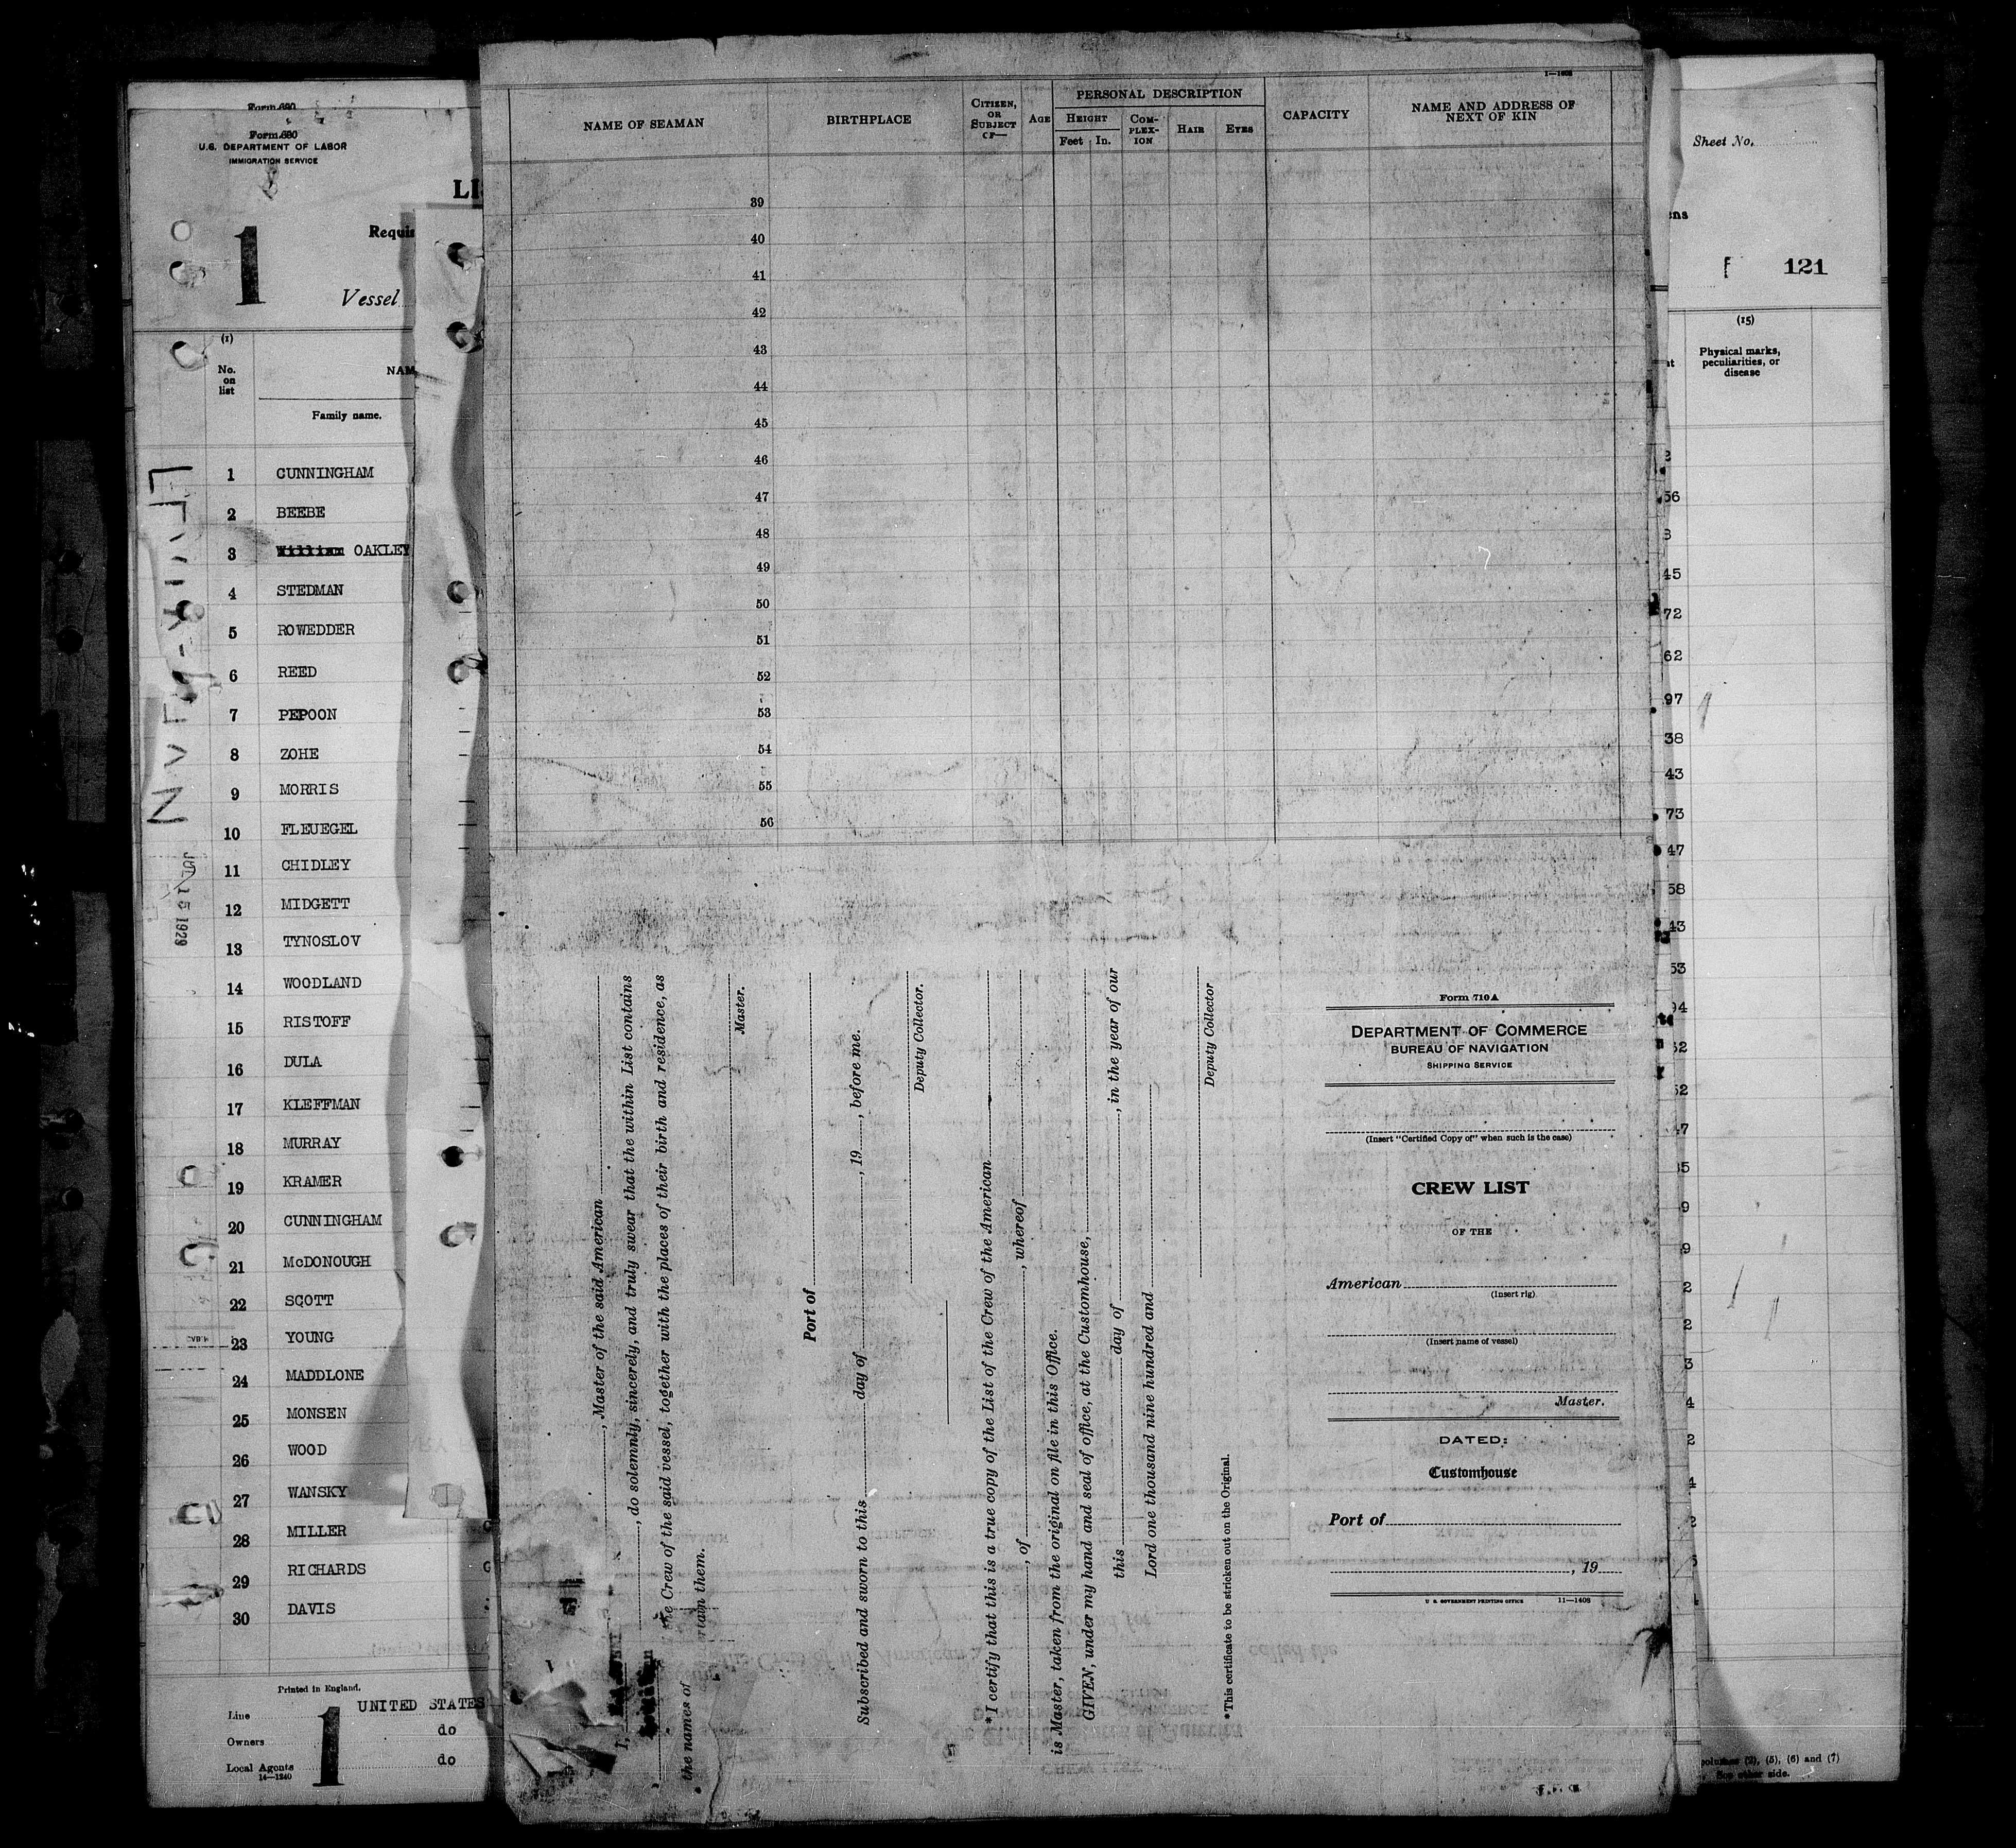 Form 680
Form 680
U.S. DEPARTMENT OF LABOR
IMMIGRATION SERVICE
1
Requis
Vessel
(1)
No. on list
NAM
Family name.
1 CUNNINGHAM
2 BEEBE
3 William OAKLEY
4 STEDMAN
5 ROWEDDER
6 REED
7 PEPOON
8 ZOHE
9 MORRIS
10 FLEUEGEL
11 CHIDLEY
12 MIDGETT
13 TYNOSLOV
14 WOODLAND
15 RISTOFF
16 DULA
17 KLEFFMAN
18 MURRAY
19 KRAMER
20 CUNNINGHAM
21 McDONOUGH
22 SCOTT
23 YOUNG
24 MADDLONE
25 MONSEN
26 WOOD
27 WANSKY
28 MILLER
29 RICHARDS
30 DAVIS
15 1929
Printed in England.
Line UNITED STATES
Owners do
Local Agents do
14—1240
1
1—1408
NAME OF SEAMAN
BIRTHPLACE
CITIZEN, OR SUBJECT OF—
AGE
PERSONAL DESCRIPTION
HEIGHT
Feet In.
COMPLEX-ION
HAIR
EYES
CAPACITY
NAME AND ADDRESS OF NEXT OF KIN
39
40
41
42
43
44
45
46
47
48
49
50
51
52
53
54
55
56
I, , Master of the said American
, do solemnly, sincerely, and truly swear that the within List contains
the names of the Crew of the said vessel, together with the places of their birth and residence, as
them.
Master.
Port of
Subscribed and sworn to this day of , 19 , before me.
Deputy Collector.
*I certify that this is a true copy of the List of the Crew of the American
, of , whereof
is Master, taken from the original on file in this Office.
GIVEN, under my hand and seal of office, at the Customhouse,
this day of , in the year of our
Lord one thousand nine hundred and
Deputy Collector
*This certificate to be stricken out on the Original.
Form 710A
DEPARTMENT OF COMMERCE
BUREAU OF NAVIGATION
SHIPPING SERVICE
(Insert "Certified Copy of" when such is the case)
CREW LIST
OF THE
American
(Insert rig)
(Insert name of vessel)
Master.
DATED:
Customhouse
Port of
, 19
U. S. GOVERNMENT PRINTING OFFICE 11—1408
Sheet No.
121
(15)
Physical marks, peculiarities, or disease
56
45
72
62
97
38
43
73
47
58
43
columns (2), (5), (6) and (7)
See other side.